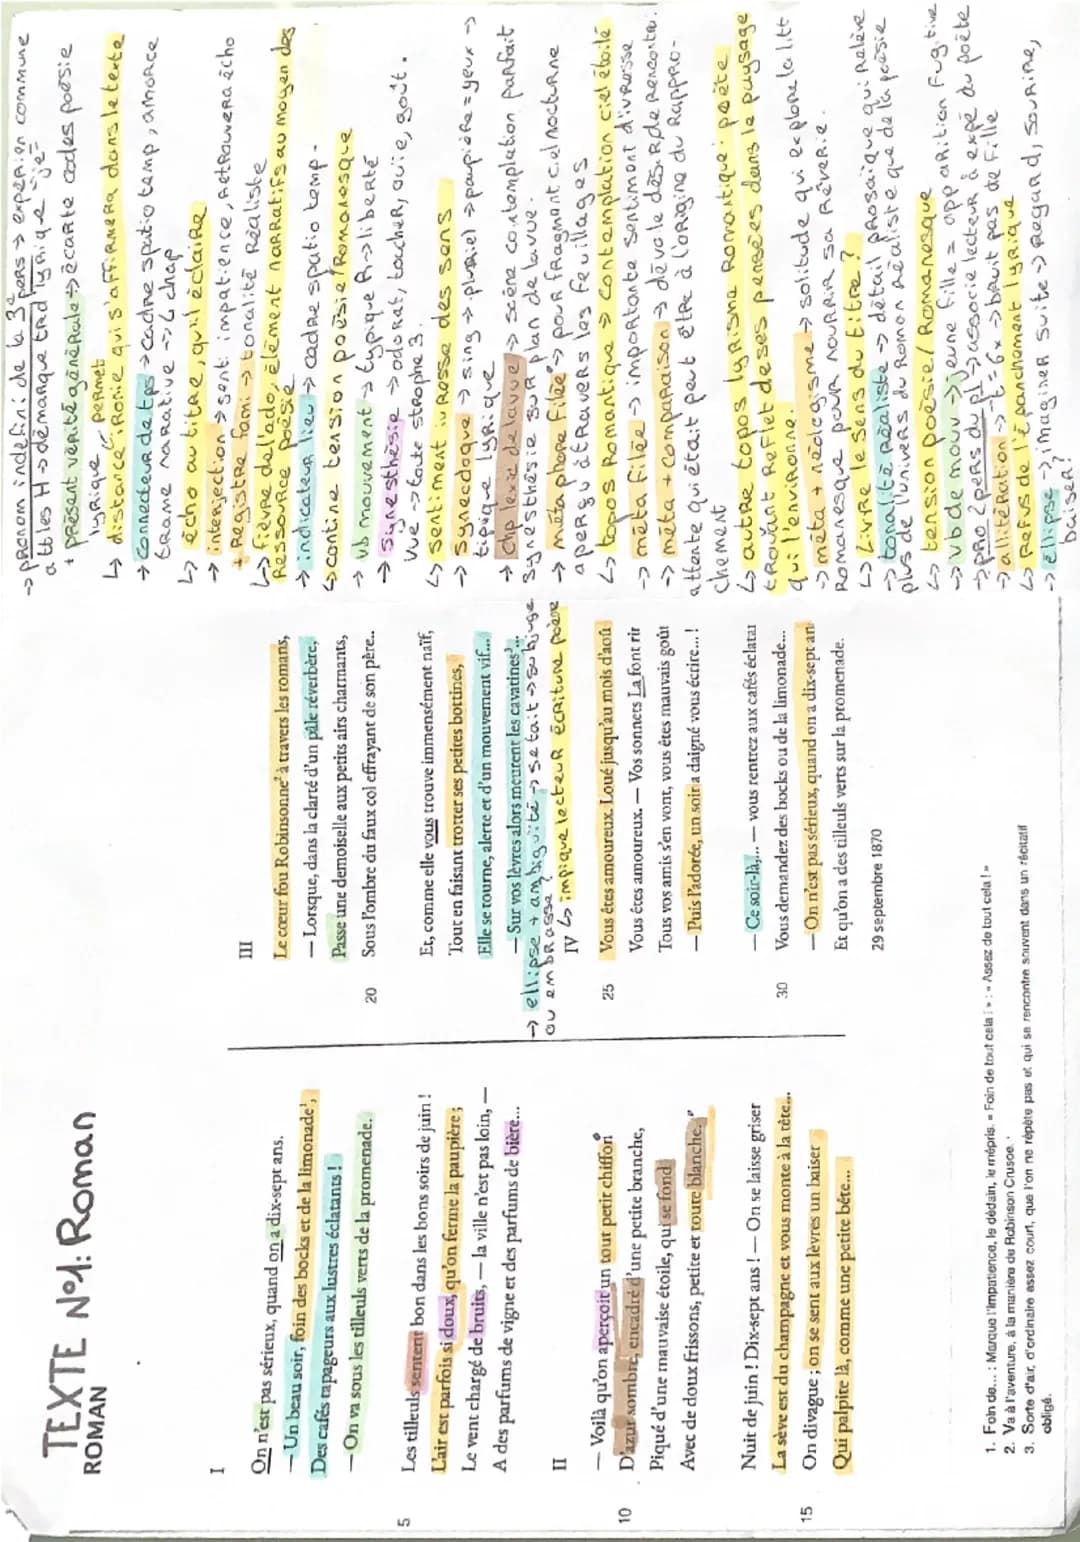 TEXTE N°1: Roman
ROMAN
I
On n'est pas sérieux, quand on a dix-sept ans.
— Un beau soir, foin des bocks et de la limonade¹,
Des cafés tapageurs aux lustres éclatants !
— On va sous les tilleuls verts de la promenade.
5 Les tilleuls sentent bon dans les bons soirs de juin !
L'air est parfois si doux, qu'on ferme la paupière ;
Le vent chargé de bruits, — la ville n'est pas loin, —
A des parfums de vigne et des parfums de bière...
II
— Voilà qu'on aperçoit un tout petit chiffon
10 D'azur sombre, encadré d'une petite branche,
Piqué d'une mauvaise étoile, qui se fond
Avec de doux frissons, petite et toute blanche.
Nuit de juin ! Dix-sept ans ! — On se laisse griser
La sève est du champagne et vous monte à la tête...
15 On divague ; on se sent aux lèvres un baiser
Qui palpite là, comme une petite bête...
III
Le cœur fou Robinsonne² à travers les romans,
— Lorsque, dans la clarté d'un pâle réverbère,
Passe une demoiselle aux petits airs charmants,
20 Sous l'ombre du faux col effrayant de son père..
Et, comme elle vous trouve immensément naïf,
Tout en faisant trotter ses petites bottines,
Elle se tourne, alerte et d'un mouvement vif...
— Sur vos lèvres alors meurent les cavatines³...
→ ellipse + ambiguité → se tait → subjugé
ou embrassé ?
IV ↳ impique lecteur écriture poème
25 Vous êtes amoureux. Loué jusqu'au mois d'août
Vous êtes amoureux. — Vos sonnets La font rir
Tous vos amis s'en vont, vous êtes mauvais goût
— Puis l'adorée, un soir a daigné vous écrire...!
— Ce soir-là,... — vous rentrez aux cafés éclatai
30 Vous demandez des bocks ou de la limonade...
— On n'est pas sérieux, quand on a dix-sept an
Et qu'on a des tilleuls verts sur la promenade.
29 septembre 1870
1. Foin de... : Marque l'impatience, le dédain, le mépris. « Foin de tout cela : » : « Assez de tout cela ! »
2. Va à l'aventure, à la manière de Robinson Crusoe.
3. Sorte d'air, d'ordinaire assez court, que l'on ne répète pas et qui se rencontre souvent dans un récitatif
obligé.
→ pronom indéfini de la 3e pers → expérien commune
a tt les H → démarque trad lyrique "je"
+ présent vérité générale → écarte codes poésie
lyrique permet
↳ distance ironie qui s'affirmera dans le texte
→ connecteur de tps → cadre spatio temp, amorce
trame narrative → 4 chap
↳ écho au titre, qu'il éclaire
→ interjection → sent. impatience, retrouvera écho
+ Registre fami → tonalité Réaliste
↳ fièvre de l'ado, élément narratifs au moyen des
Ressource poésie
→ indicateur lieu → cadre spatio temp.
↳ contine tension poésie/Romanesque
→ vb mouvement → typique R → liberté
→ synesthésie → odorat, toucher, ouïe, goût.
vue → toute strophe 3.
↳ sentiment ivresse des sens
→ synecdoque → sing → pluriel → paupière = yeux →
tipique lyrique
→ chp lexic de la vue → scène contemplation parfait
synesthésie sur plan de la vue.
→ métaphore filée → pour fragment ciel nocturne
aperçu à travers les feuillages
↳ topos Romantique → contemplation ciel étoilé
→ méta filée → importante sentiment d'ivresse
→ méta + comparaison → dévoile désir, de rencontre.
attente qui était peut être à l'origine du Rappro-
chement
↳ autre topos lyrisme Romantique : poète
trouvant Reflet de ses pensées dans le paysage
qui l'environne.
→ méta + néologisme → solitude qui explore la litt
Romanesque pour nourrir sa Rêverie.
↳ Livre le sens du titre ?
→ tonalité réaliste → détail prosaïque qui Relève
plus de l'univers du Roman réaliste que de la poésie
↳ tension poésie/Romanesque
→ vb de mouv → jeune fille = apparition fugitive
→ pro 2e pers du pl → associe lecteur à expé du poète
→ allitération → "t" = 6x → bruit pas de fille
↳ Refus de l'épanchement lyrique
→ ellipse → imaginer suite → Regard, sourire,
baiser ?